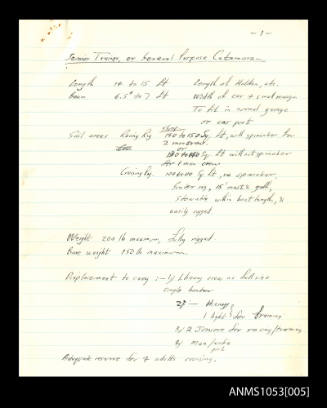 - 1 -
Senior Trainer, or General Purpose Catamaran
Length 14 to 15 ft Length of Holden, etc.
Beam 6.5' to 7 ft Width of car & small margin
To fit in normal garage
or car port
Sail areas Racing Rig 140 to 150 sq. ft, with spinnaker for
2 men crew
or
sq. ft without spinnaker
for 1 man crew
Cruising Rig. sq ft, no spinnaker,
rig, 15' mast & gaff,
Stowable within boat length, &
easily rigged
Weight 200 lb maximum, fully rigged.
Bare weight 150 lb maximum.
Displacement to carry :- 1/ 1 heavy crew as
single hander
2/ — 1 heavy,
1 light for training
3/ 2 Juniors for racing/training
4/ Man/wife
Adequate reserve for 4 adults cruising.
ANMS1053[005]